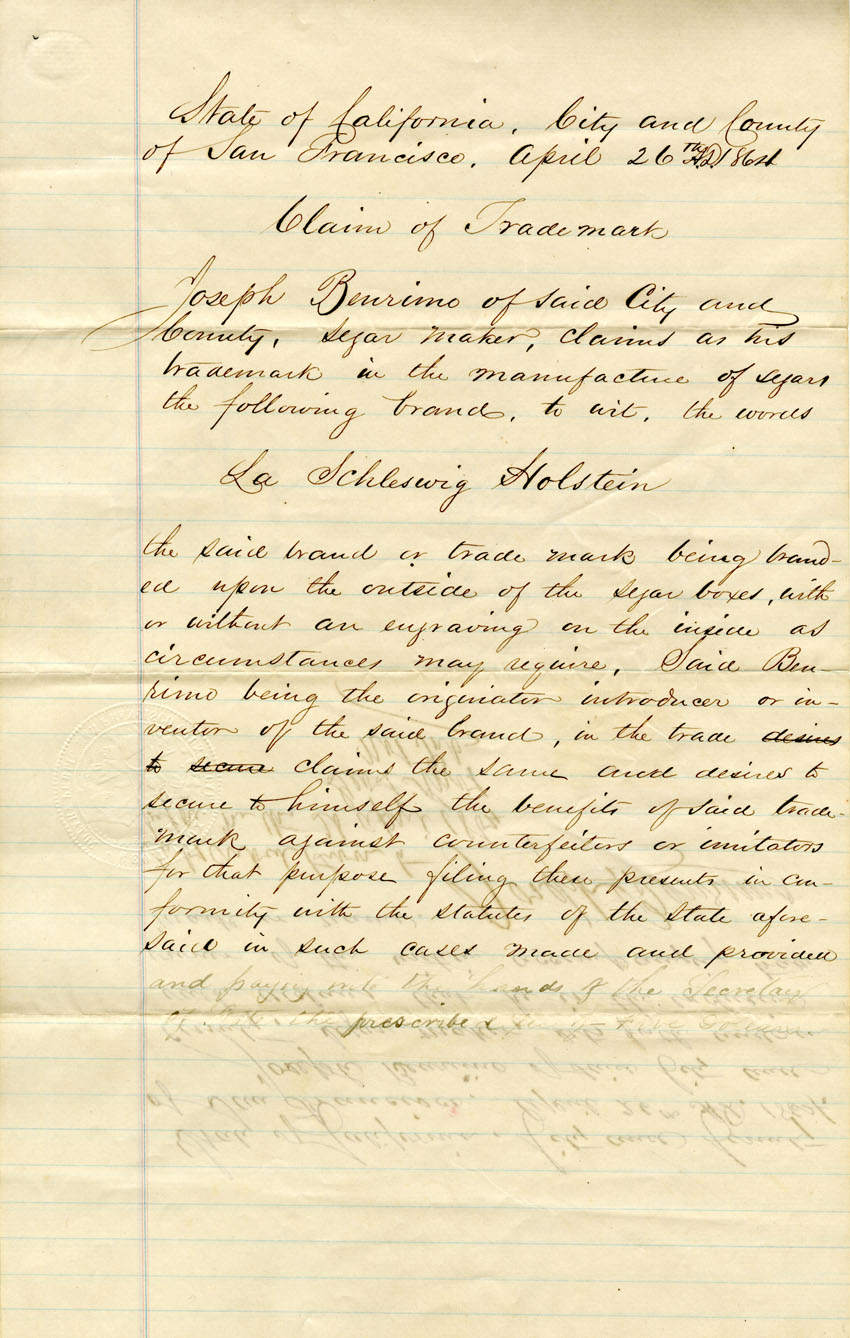 State of California, City and County
of San Francisco. April 26th A.D. 1864
Claim of Trademark
Joseph Benrimo of said City and
County, segar maker, claims as his
trademark in the manufacture of segars
the following brand, to wit, the words
La Schleswig Holstein
the said brand or trade mark being brand-
ed upon the outside of the segar boxes, with
or without an engraving on the inside as
circumstances may require. Said Ben-
rimo being the originator introducer or in-
ventor of the said brand, in the trade desires
to secure claims the same and desires to
secure to himself the benefits of said trade-
mark against counterfeitors or imitators
for that purpose filing these presents in con-
formity with the statutes of the State afore-
said in such cases made and provided
and paying into the hands of the Secretary
of State the prescribed